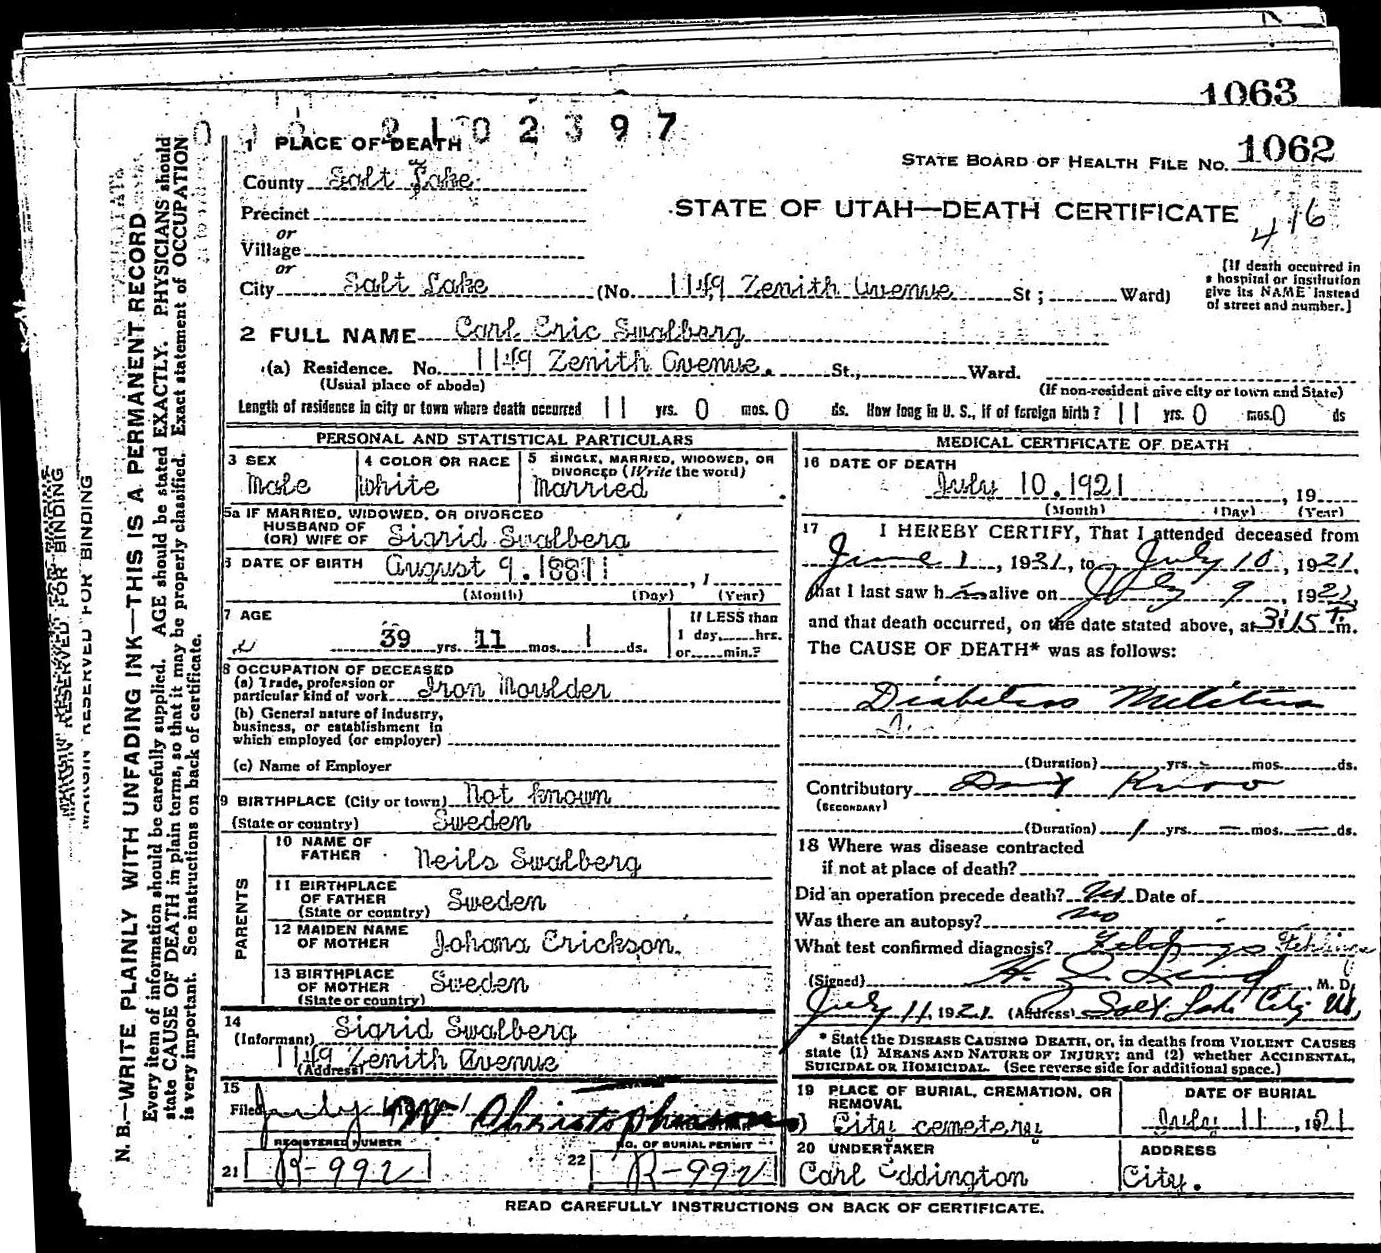 1063
2102397
1 PLACE OF DEATH
STATE BOARD OF HEALTH FILE NO. 1062
County Salt Lake
Precinct
STATE OF UTAH—DEATH CERTIFICATE
416
or
Village
or
City Salt Lake (No. 1149 Zenith Avenue St; Ward)
[If death occurred in
a hospital or institution
give its NAME instead
of street and number.]
2 FULL NAME Carl Eric Swalberg
(a) Residence. No. 1149 Zenith Avenue. St., Ward.
(Usual place of abode) (If non-resident give city or town and State)
Length of residence in city or town where death occurred 11 yrs. 0 mos. 0 ds. How long in U. S., if of foreign birth? 11 yrs. 0 mos. 0 ds
PERSONAL AND STATISTICAL PARTICULARS
3 SEX
Male
4 COLOR OR RACE
White
5 SINGLE, MARRIED, WIDOWED, OR
DIVORCED (Write the word)
Married
5a IF MARRIED, WIDOWED, OR DIVORCED
HUSBAND OF
(OR) WIFE OF Sigrid Swalberg
6 DATE OF BIRTH August 9, 1881
(Month) (Day) (Year)
7 AGE
39 yrs. 11 mos. 1 ds.
If LESS than
1 day, hrs.
or min.?
8 OCCUPATION OF DECEASED
(a) Trade, profession or
particular kind of work Iron Moulder
(b) General nature of industry,
business, or establishment in
which employed (or employer)
(c) Name of Employer
9 BIRTHPLACE (City or town) Not known
(State or country) Sweden
PARENTS
10 NAME OF
FATHER Neils Swalberg
11 BIRTHPLACE
OF FATHER
(State or country) Sweden
12 MAIDEN NAME
OF MOTHER Johana Erickson.
13 BIRTHPLACE
OF MOTHER
(State or country) Sweden
14
(Informant) Sigrid Swalberg
(Address) 1149 Zenith Avenue
15
Filed July Christopherson
REGISTERED NUMBER
21 R-992
NO. OF BURIAL PERMIT
22 R-992
MEDICAL CERTIFICATE OF DEATH
16 DATE OF DEATH
July 10, 1921, 19
(Month) (Day) (Year)
17 I HEREBY CERTIFY, That I attended deceased from
June 1, 1921, to July 10, 1921,
that I last saw h alive on July 9, 1921,
and that death occurred, on the date stated above, at 3:15 P m.
The CAUSE OF DEATH* was as follows:
Diabetess Melitus
(Duration) yrs. mos. ds.
Contributory Dont Know
(SECONDARY)
(Duration) 1 yrs. — mos. — ds.
18 Where was disease contracted
if not at place of death?
Did an operation precede death? No Date of
Was there an autopsy? no
What test confirmed diagnosis? Fehlings Fehlings
(Signed) M. D.
July 11, 1921. (Address) Salt Lake City Ut,
* State the DISEASE CAUSING DEATH, or, in deaths from VIOLENT CAUSES
state (1) MEANS AND NATURE OF INJURY; and (2) whether ACCIDENTAL,
SUICIDAL OR HOMICIDAL. (See reverse side for additional space.)
19 PLACE OF BURIAL, CREMATION, OR
REMOVAL
City cemetery
DATE OF BURIAL
July 11, 1921
20 UNDERTAKER
Carl Eddington
ADDRESS
City.
READ CAREFULLY INSTRUCTIONS ON BACK OF CERTIFICATE.
MARGIN RESERVED FOR BINDING
MARGIN RESERVED FOR BINDING
N. B.—WRITE PLAINLY WITH UNFADING INK—THIS IS A PERMANENT RECORD
Every item of information should be carefully supplied. AGE should be stated EXACTLY. PHYSICIANS should
state CAUSE OF DEATH in plain terms, so that it may be properly classified. Exact statement of OCCUPATION
is very important. See instructions on back of certificate.